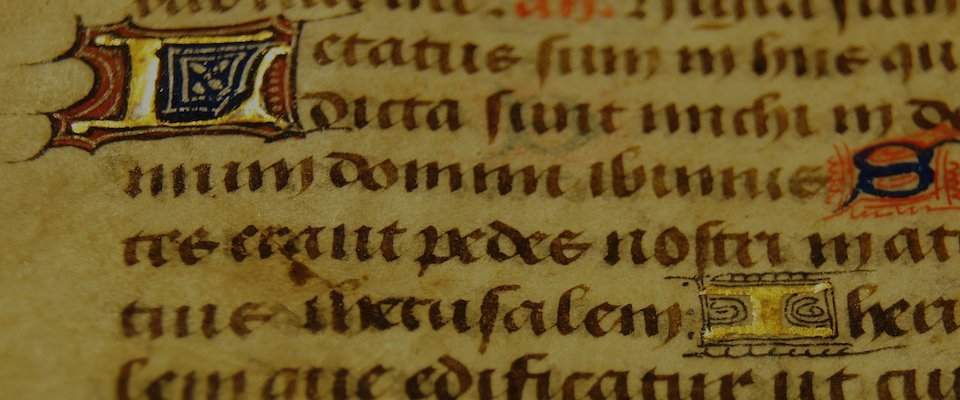 an. Nigra sum
Letatus sum in hiis qu
dicta sunt michi in do
mum domini ibimus S
tes erant pedes nostri in at
tuis iherusalem: Iheru
lem que edificatur ut ci